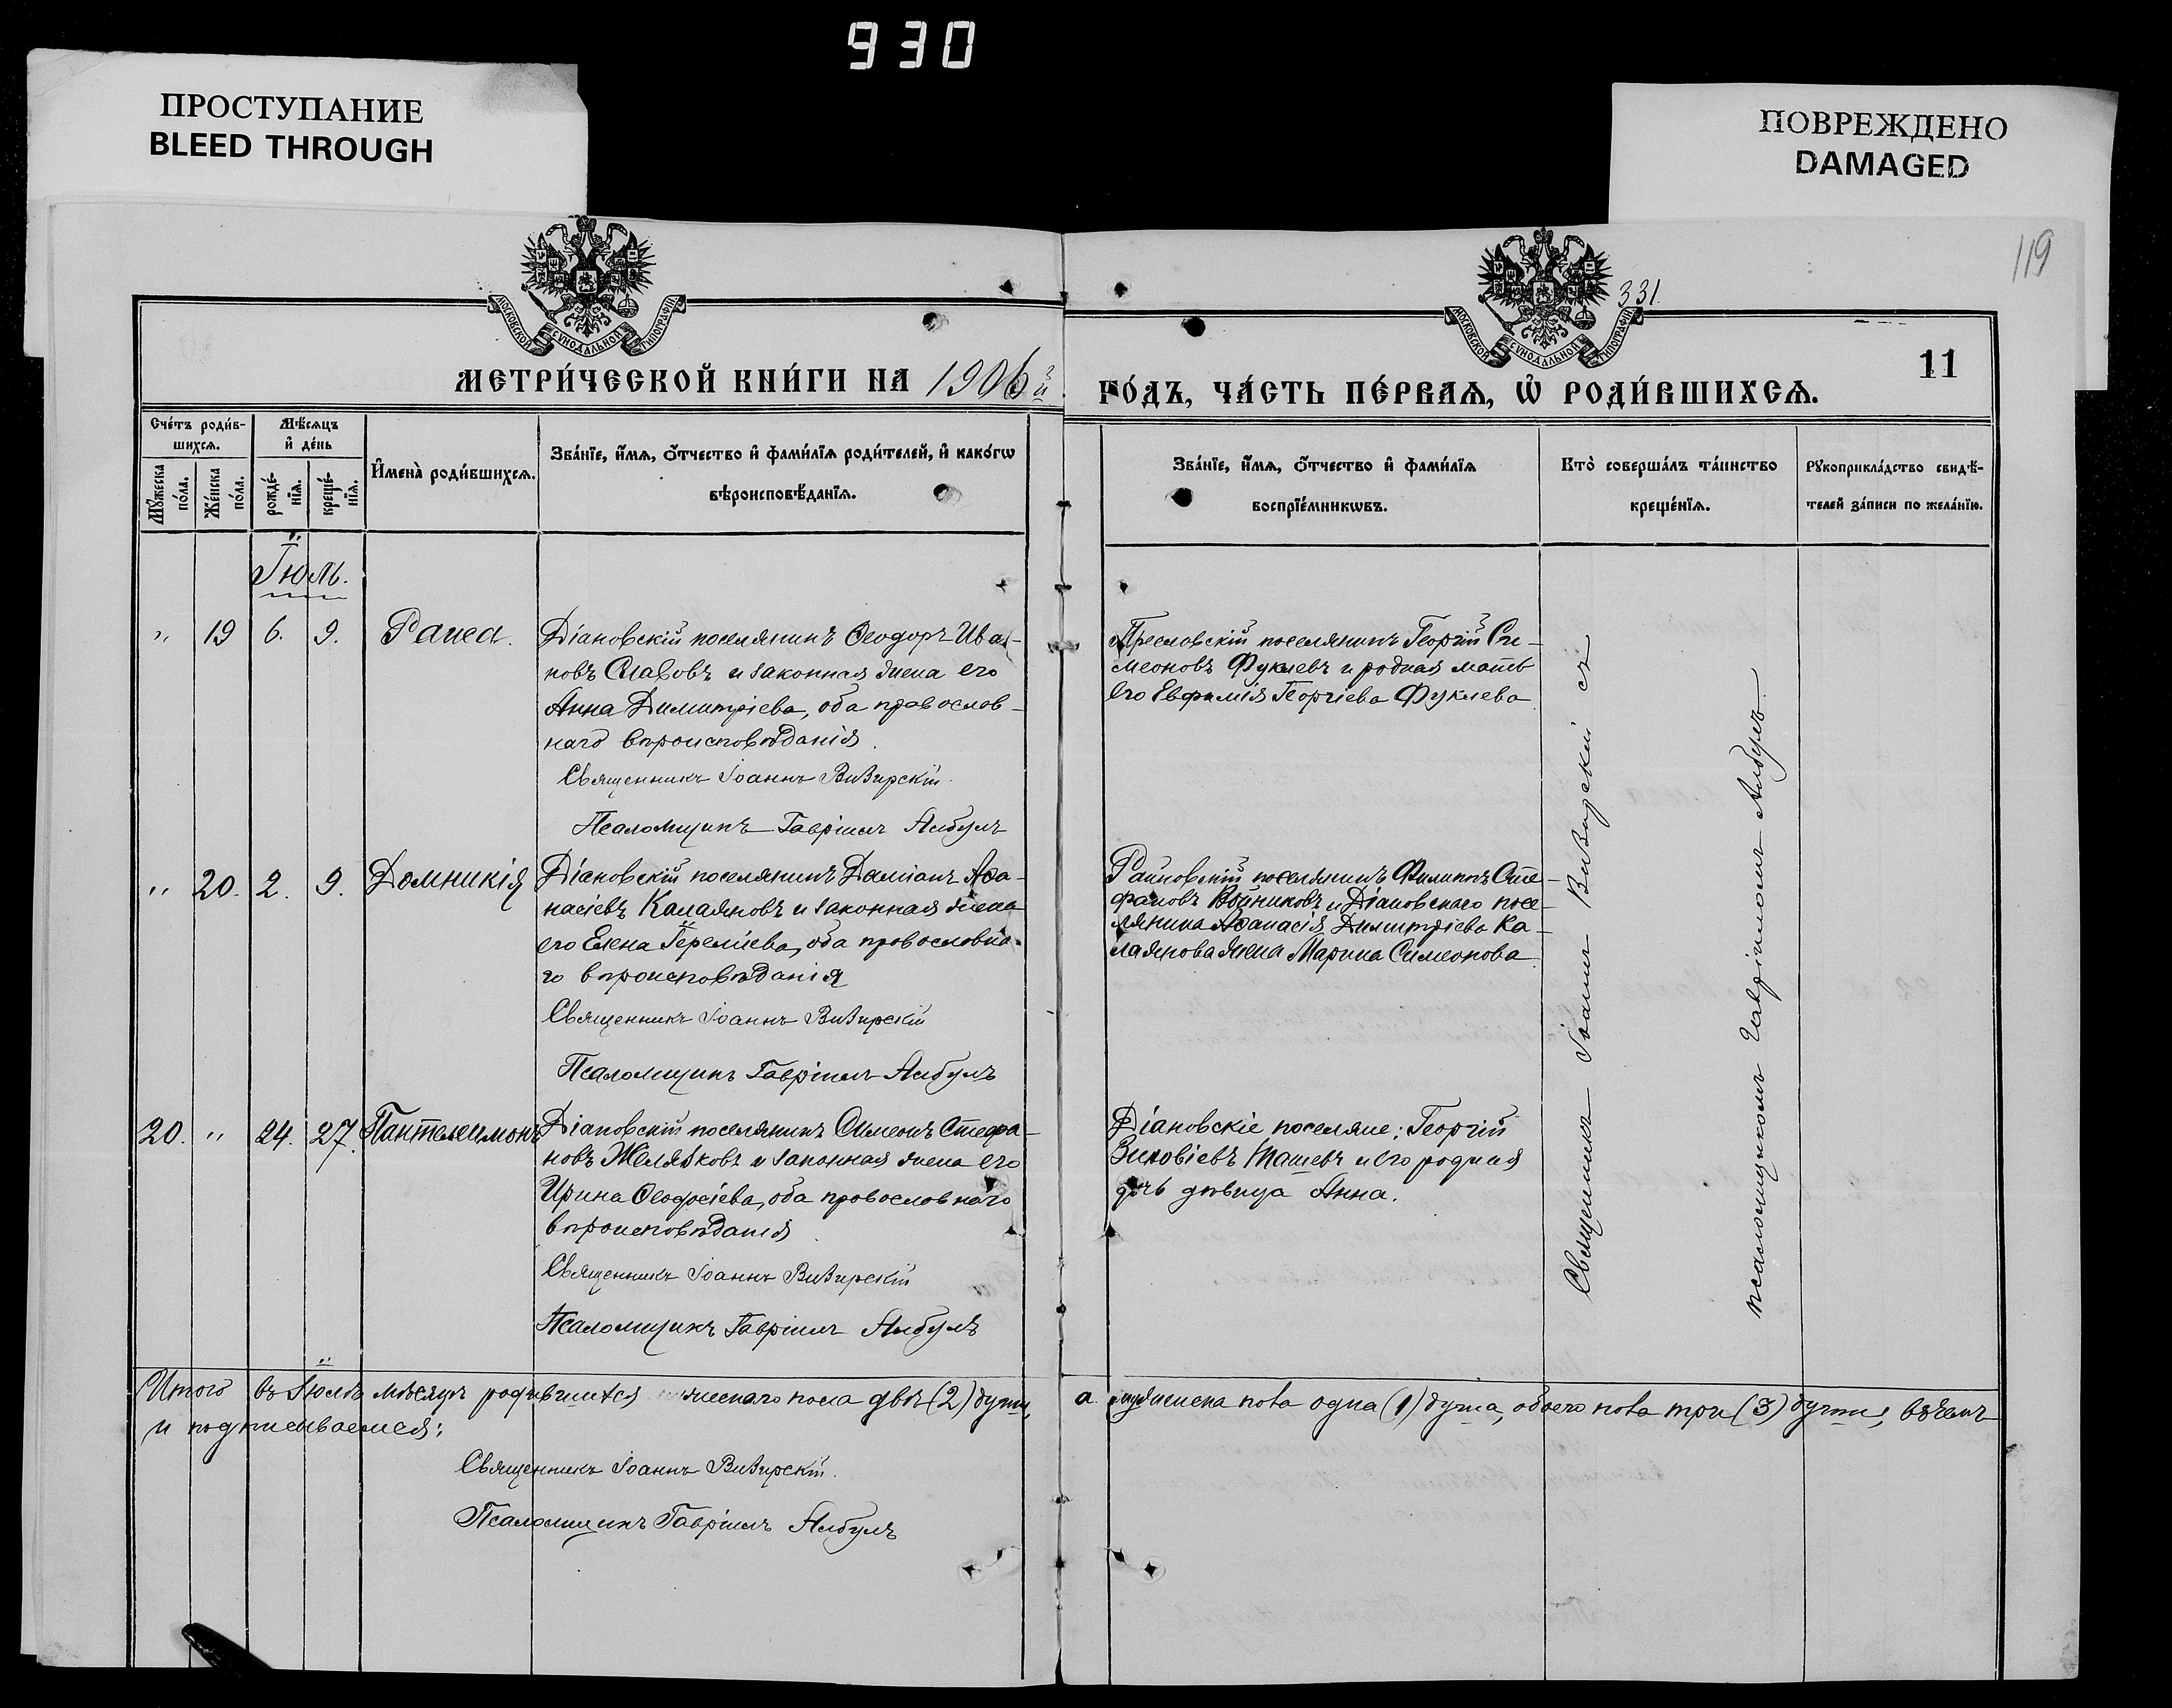 930
ПРОСТУПАНИЕ
BLEED THROUGH
ПОВРЕЖДЕНО
DAMAGED
119
331.
11
МОСКОВСКОЙ СѴНОДАЛЬНОЙ ТИПОГРАФІИ
МОСКОВСКОЙ СѴНОДАЛЬНОЙ ТИПОГРАФІИ
МЕТРИ́ЧЕСКОЙ КНИ́ГИ НА 1906й
ГО́ДЪ, ЧА́СТЬ ПЕ́РВАѦ, Ѡ РОДИ́ВШИХСѦ.
Сче́тъ роди́в-
шихсѧ.
Мꙋ́жеска
по́ла.
Же́нска
по́ла.
Мѣ́сѧцъ
и҆ де́нь
рожде́-
нїѧ.
креще́-
нїѧ.
И҆мена̀ роди́вшихсѧ.
Зва́нїе, и҆́мѧ, ѻ҆́тчество и҆ фами́лїѧ роди́телей, и҆ како́гѡ
вѣроисповѣ́данїѧ.
Зва́нїе, и҆́мѧ, ѻ҆́тчество и҆ фами́лїѧ
воспрїе́мникѡвъ.
Кто̀ соверша́лъ та́инство
креще́нїѧ.
Рꙋкоприкла́дство свидѣ́-
телей за́писи по жела́нїю.
Іюль.
,, 19 6. 9. Раиса.
Діановскій поселянинъ Ѳеодоръ Ива-
новъ Славовъ и законная жена его
Анна Димитріева, оба православ-
наго вѣроисповѣданія.
Священникъ Іоаннъ Визирскій
Псаломщикъ Гавріилъ Албулъ
Преславскій поселянинъ Георгій Си-
меоновъ Фуклевъ и родная мать
его Евфимія Георгіева Фуклева
,, 20. 2. 9. Домникія
Діановскій поселянинъ Даміанъ Аѳа-
насіевъ Калаяновъ и законная жена
его Елена Іереміева, оба православна-
го вѣроисповѣданія
Священникъ Іоаннъ Визирскій
Псаломщикъ Гавріилъ Албулъ
Райновскій поселянинъ Филиппъ Сте-
фановъ Войниковъ и Діановскаго посе-
лянина Аѳанасія Димитріева Ка-
лаянова жена Марина Симеонова
20. ,, 24. 27. Пантелеимонъ
Діановскій поселянинъ Симеонъ Стефа-
новъ Желязковъ и законная жена его
Ирина Ѳеодосіева, оба православнаго
вѣроисповѣданія
Священникъ Іоаннъ Визирскій
Псаломщикъ Гавріилъ Албулъ
Діановскіе поселяне: Георгій
Зиновіевъ Ташевъ и его родная
дочь дѣвица Анна.
Священникъ Іоаннъ Визирскій съ
псаломщикомъ Гавріиломъ Албулъ
Итого въ Іюлѣ мѣсяцѣ родившихся женскаго пола двѣ (2) души, а мужеска пола одна (1) душа, обоего пола три (3) души, въ чемъ
и подписываемся:
Священникъ Іоаннъ Визирскій.
Псаломщикъ Гавріилъ Албулъ